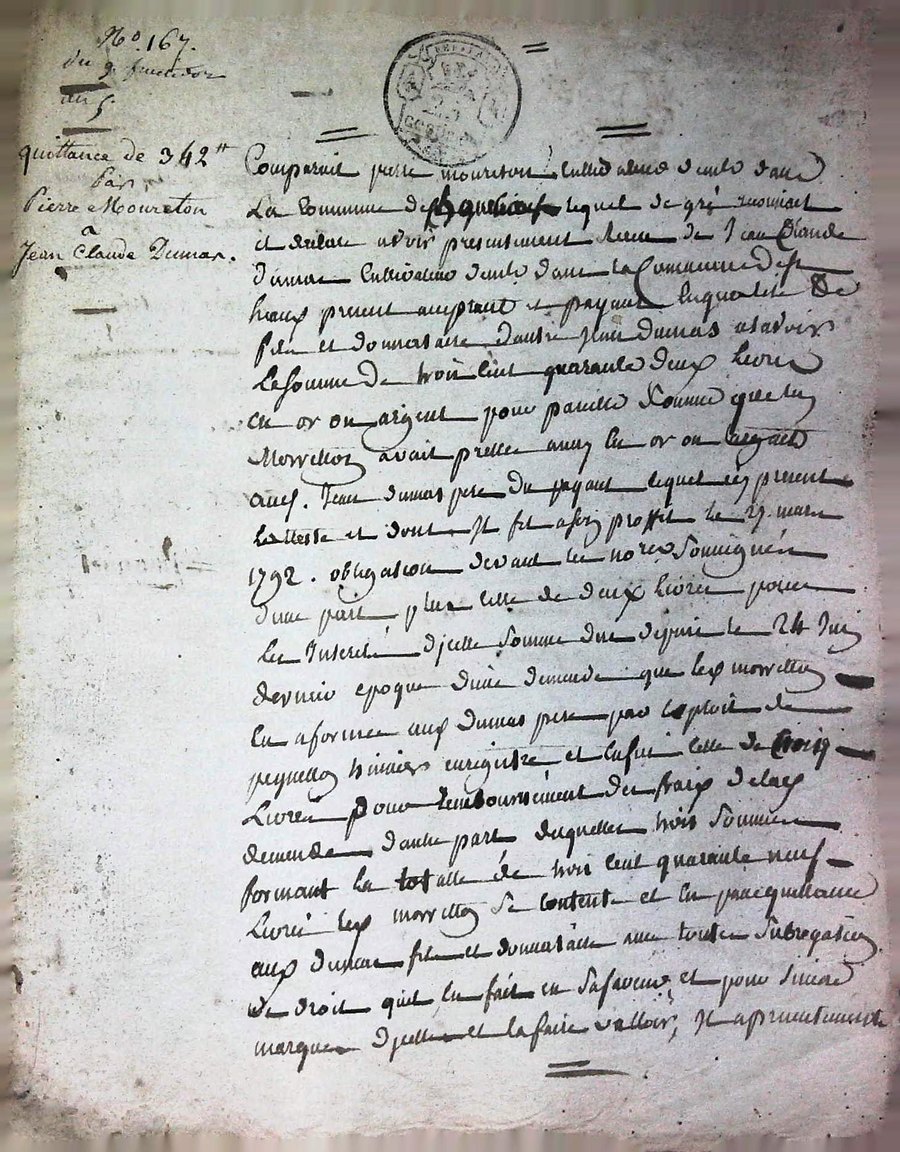 No. 167.
du 9 fructidor
an 5
quittance de 342tt
par
Pierre Moureton
a
Jean Claude Dumas.
Comparait pierre moureton Cultivateur dans
La Commune de lequel de gré reconnait
et declare avoir presentement Receu de Jean Claude
dumas Cultivateur dans la Commune
present acceptant et payant En qualité De
fils et donnataire d'autre Jean dumas a savoir
La somme De trois Cent quarante deux Livres
en or ou argent pour pareille Somme que led
avait prettee en or ou argent
aud. Jean dumas pere du payant lequel present
Latteste et dont Jl fit a son proffit le mars
1792. obligation devant le nore Soussigné
d'une part plus Celle de deux Livres pour
Les Interets d'jcelle Somme due depuis le 24
dernier epoque d'une demande que led
En a formee aud dumas pere par Exploit de
huissier enregistre et Enfin Celle de
Livres pour Remboursement des fraix de lad
demande d'autre part desquelles trois Sommes
formant La totalle de trois Cent quarante neuf
Livres led Se Contente et En
aud dumas fils et donnataire avec toute Subrogation
de droit quil En fait en Sa faveur et pour
marque d'jcelle et La faire valloir, Jl a presentement